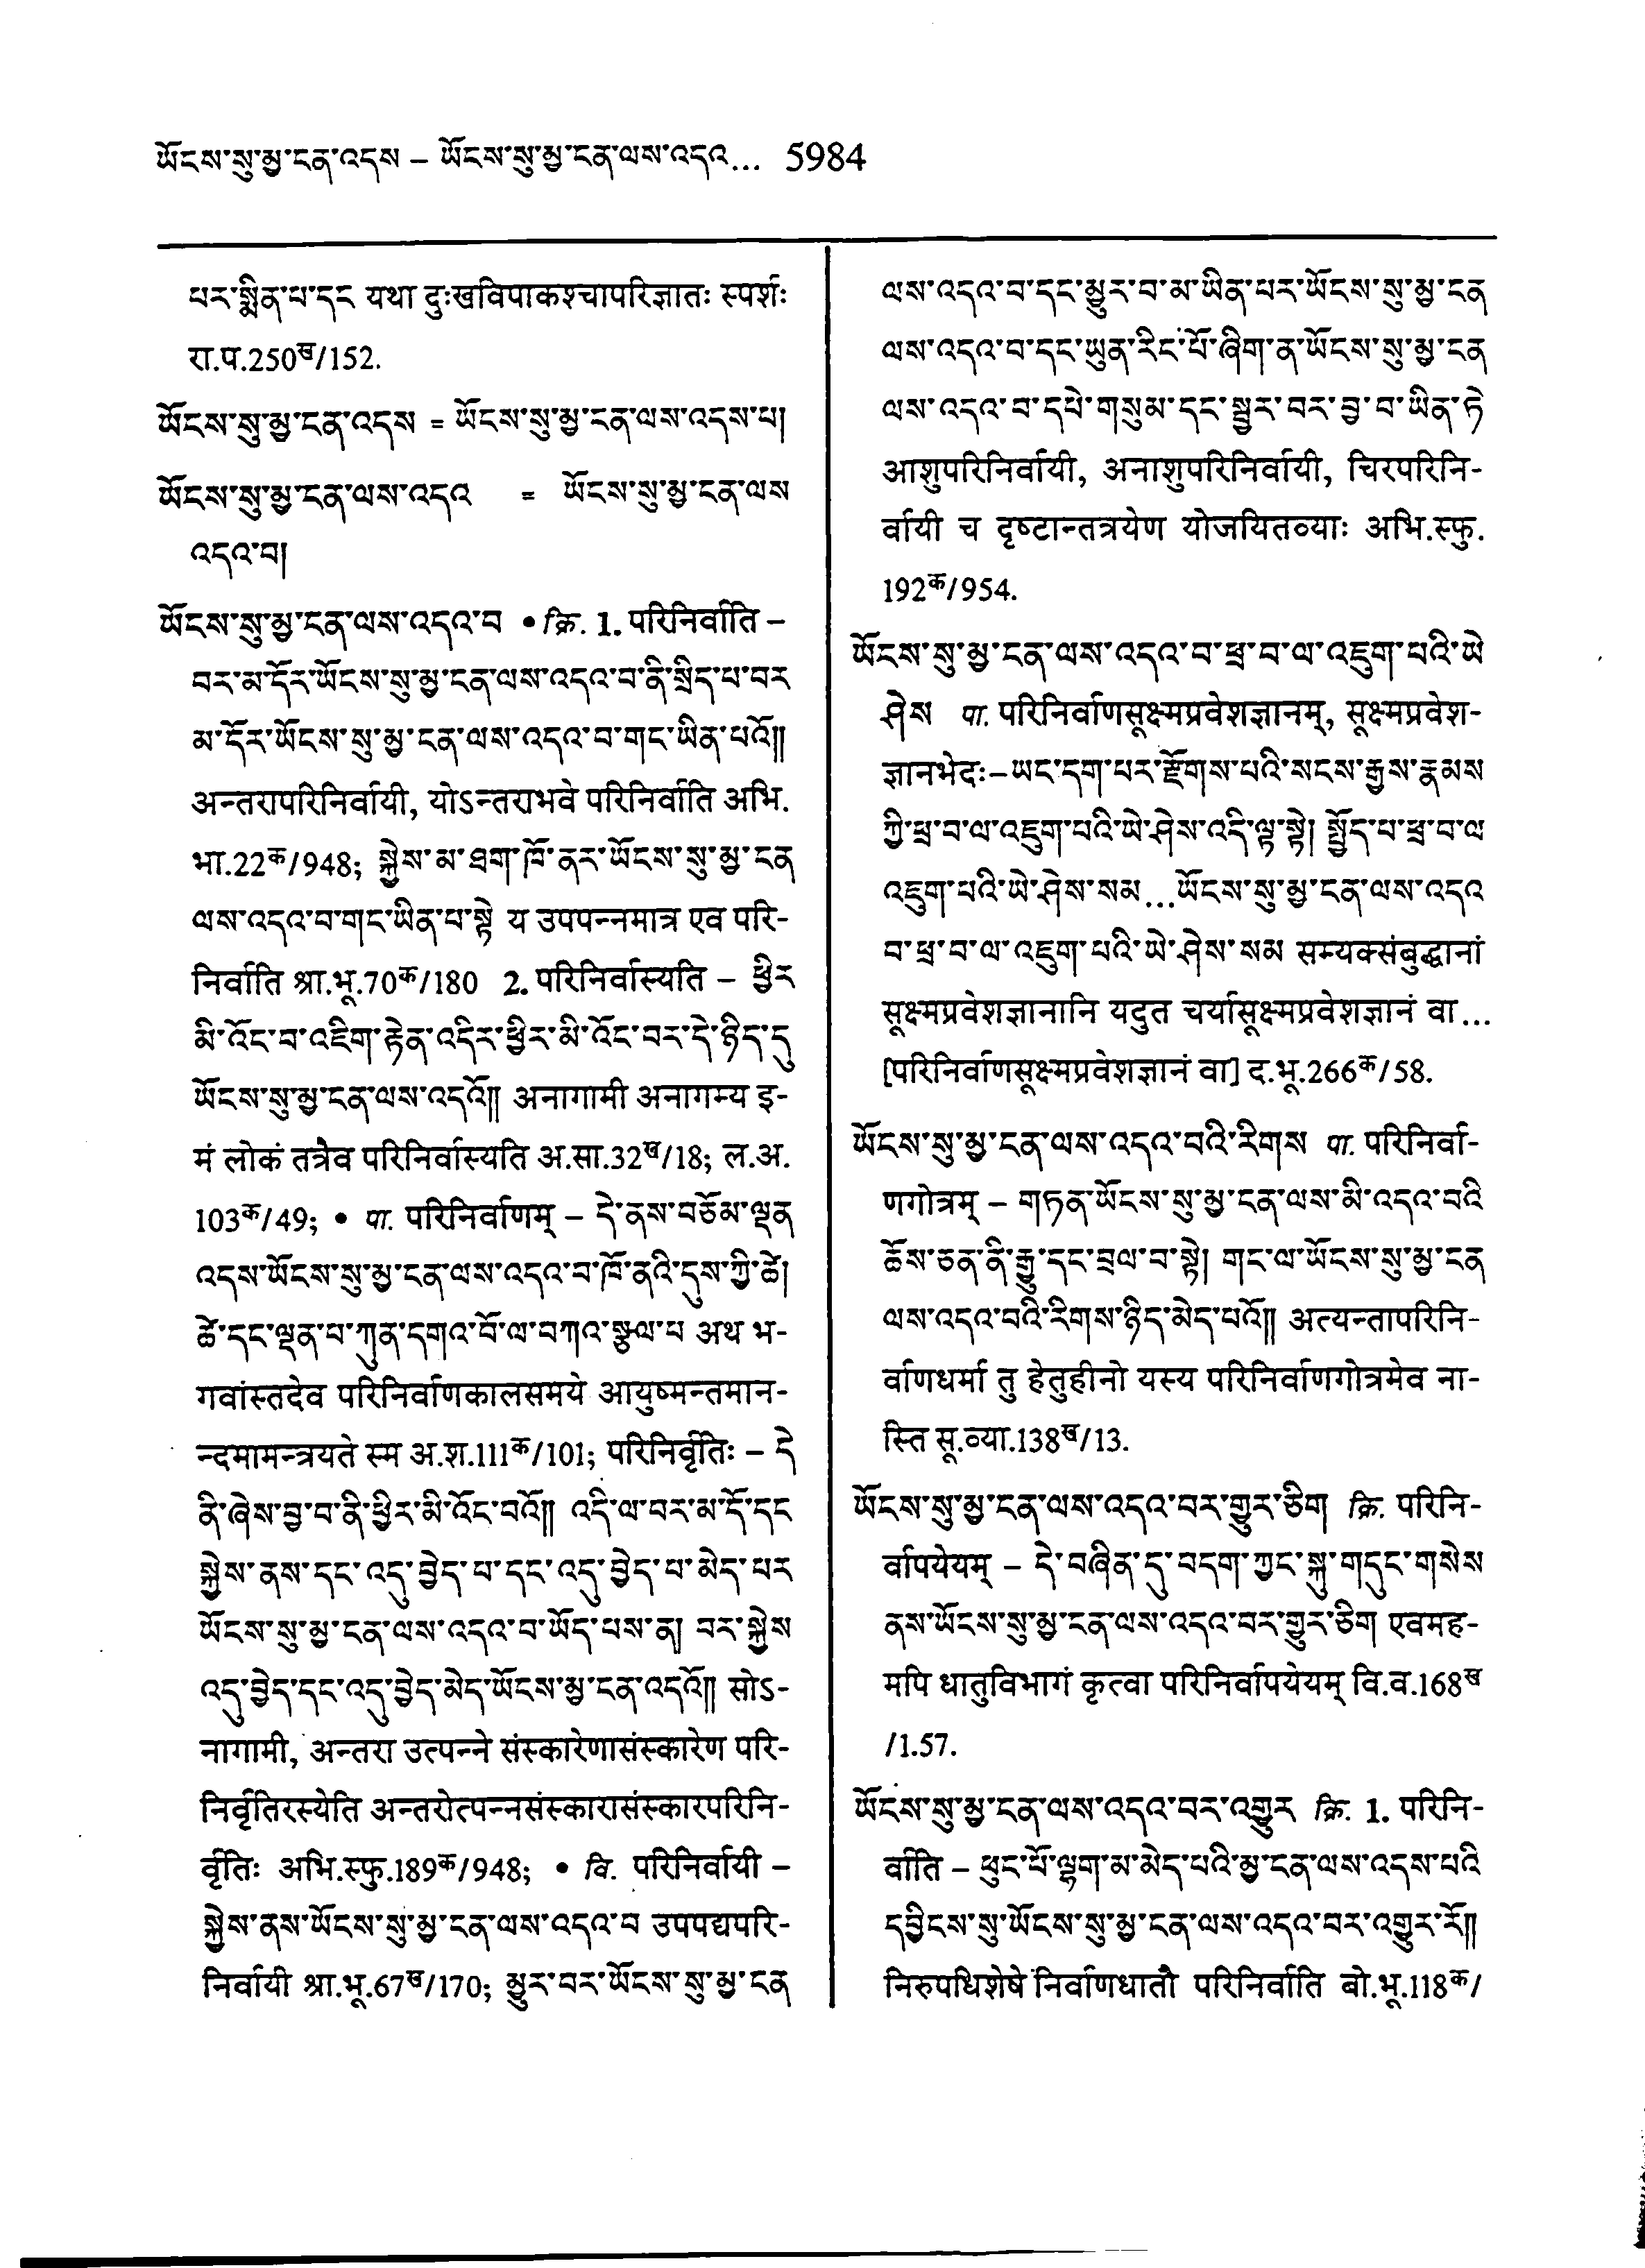 ཡོངས་སུ་མྱ་ངན་འདས – ཡོངས་སུ་མྱ་ངན་ལས་འདའ... 5984
པར་སྨིན་པ་དང यथा दुःखविपाकश्चापरिज्ञातः स्पर्शः
रा.प.250ख/152.
ཡོངས་སུ་མྱ་ངན་འདས = ཡོངས་སུ་མྱ་ངན་ལས་འདས་པ།
ཡོངས་སུ་མྱ་ངན་ལས་འདའ = ཡོངས་སུ་མྱ་ངན་ལས
འདའ་བ།
ཡོངས་སུ་མྱ་ངན་ལས་འདའ་བ • क्रि. 1. परिनिर्वाति –
བར་མ་དོར་ཡོངས་སུ་མྱ་ངན་ལས་འདའ་བ་ནི་སྲིད་པ་བར
མ་དོར་ཡོངས་སུ་མྱ་ངན་ལས་འདའ་བ་གང་ཡིན་པའོ།།
अन्तरापरिनिर्वायी, योऽन्तराभवे परिनिर्वाति अभि.
भा.22क/948; སྐྱེས་མ་ཐག་ཁོ་ནར་ཡོངས་སུ་མྱ་ངན
ལས་འདའ་བ་གང་ཡིན་པ་སྟེ य उपपन्नमात्र एव परि-
निर्वाति श्रा.भू.70क/180 2. परिनिर्वास्यति – ཕྱིར
མི་འོང་བ་འཇིག་རྟེན་འདིར་ཕྱིར་མི་འོང་བར་དེ་ཉིད་དུ
ཡོངས་སུ་མྱ་ངན་ལས་འདའོ།། अनागामी अनागम्य इ-
मं लोकं तत्रैव परिनिर्वास्यति अ.सा.32ख/18; ल.अ.
103क/49; • पा. परिनिर्वाणम् – དེ་ནས་བཅོམ་ལྡན
འདས་ཡོངས་སུ་མྱ་ངན་ལས་འདའ་བ་ཁོ་ནའི་དུས་ཀྱི་ཚེ།
ཚེ་དང་ལྡན་པ་ཀུན་དགའ་བོ་ལ་བཀའ་སྩལ་པ अथ भ-
गवांस्तदेव परिनिर्वाणकालसमये आयुष्मन्तमान-
न्दमामन्त्रयते स्म अ.श.111क/101; परिनिर्वृतिः – དེ
ནི་ཞེས་བྱ་བ་ནི་ཕྱིར་མི་འོང་བའོ།། འདི་ལ་བར་མ་དོ་དང
སྐྱེས་ནས་དང་འདུ་བྱེད་པ་དང་འདུ་བྱེད་པ་མེད་པར
ཡོངས་སུ་མྱ་ངན་ལས་འདའ་བ་ཡོད་པས་ན། བར་སྐྱེས
འདུ་བྱེད་དང་འདུ་བྱེད་མེད་ཡོངས་མྱ་ངན་འདའོ།། सोऽ-
नागामी, अन्तरा उत्पन्ने संस्कारेणासंस्कारेण परि-
निर्वृतिरस्येति अन्तरोत्पन्नसंस्कारासंस्कारपरिनि-
र्वृतिः अभि.स्फु.189क/948; • वि. परिनिर्वायी –
སྐྱེས་ནས་ཡོངས་སུ་མྱ་ངན་ལས་འདའ་བ उपपद्यपरि-
निर्वायी श्रा.भू.67ख/170; མྱུར་བར་ཡོངས་སུ་མྱ་ངན
ལས་འདའ་བ་དང་མྱུར་བ་མ་ཡིན་པར་ཡོངས་སུ་མྱ་ངན
ལས་འདའ་བ་དང་ཡུན་རིང་པོ་ཞིག་ན་ཡོངས་སུ་མྱ་ངན
ལས་འདའ་བ་དཔེ་གསུམ་དང་སྦྱར་བར་བྱ་བ་ཡིན་ཏེ
आशुपरिनिर्वायी, अनाशुपरिनिर्वायी, चिरपरिनि-
र्वायी च दृष्टान्तत्रयेण योजयितव्याः अभि.स्फु.
192क/954.
ཡོངས་སུ་མྱ་ངན་ལས་འདའ་བ་ཕྲ་བ་ལ་འཇུག་པའི་ཡེ
ཤེས पा. परिनिर्वाणसूक्ष्मप्रवेशज्ञानम्, सूक्ष्मप्रवेश-
ज्ञानभेदः – ཡང་དག་པར་རྫོགས་པའི་སངས་རྒྱས་རྣམས
ཀྱི་ཕྲ་བ་ལ་འཇུག་པའི་ཡེ་ཤེས་འདི་ལྟ་སྟེ། སྤྱོད་པ་ཕྲ་བ་ལ
འཇུག་པའི་ཡེ་ཤེས་སམ...ཡོངས་སུ་མྱ་ངན་ལས་འདའ
བ་ཕྲ་བ་ལ་འཇུག་པའི་ཡེ་ཤེས་སམ सम्यक्संबुद्धानां
सूक्ष्मप्रवेशज्ञानानि यदुत चर्यासूक्ष्मप्रवेशज्ञानं वा...
[परिनिर्वाणसूक्ष्मप्रवेशज्ञानं वा] द.भू.266क/58.
ཡོངས་སུ་མྱ་ངན་ལས་འདའ་བའི་རིགས पा. परिनिर्वा-
णगोत्रम् – གཏན་ཡོངས་སུ་མྱ་ངན་ལས་མི་འདའ་བའི
ཆོས་ཅན་ནི་རྒྱུ་དང་བྲལ་བ་སྟེ། གང་ལ་ཡོངས་སུ་མྱ་ངན
ལས་འདའ་བའི་རིགས་ཉིད་མེད་པའོ།། अत्यन्तापरिनि-
र्वाणधर्मा तु हेतुहीनो यस्य परिनिर्वाणगोत्रमेव ना-
स्ति सू.व्या.138ख/13.
ཡོངས་སུ་མྱ་ངན་ལས་འདའ་བར་གྱུར་ཅིག क्रि. परिनि-
र्वापयेयम् – དེ་བཞིན་དུ་བདག་ཀྱང་སྐུ་གདུང་གསེས
ནས་ཡོངས་སུ་མྱ་ངན་ལས་འདའ་བར་གྱུར་ཅིག एवमह-
मपि धातुविभागं कृत्वा परिनिर्वापयेयम् वि.व.168ख
/1.57.
ཡོངས་སུ་མྱ་ངན་ལས་འདའ་བར་འགྱུར क्रि. 1. परिनि-
र्वाति – ཕུང་པོ་ལྷག་མ་མེད་པའི་མྱ་ངན་ལས་འདས་པའི
དབྱིངས་སུ་ཡོངས་སུ་མྱ་ངན་ལས་འདའ་བར་འགྱུར་རོ།།
निरुपधिशेषे निर्वाणधातौ परिनिर्वाति बो.भू.118क/